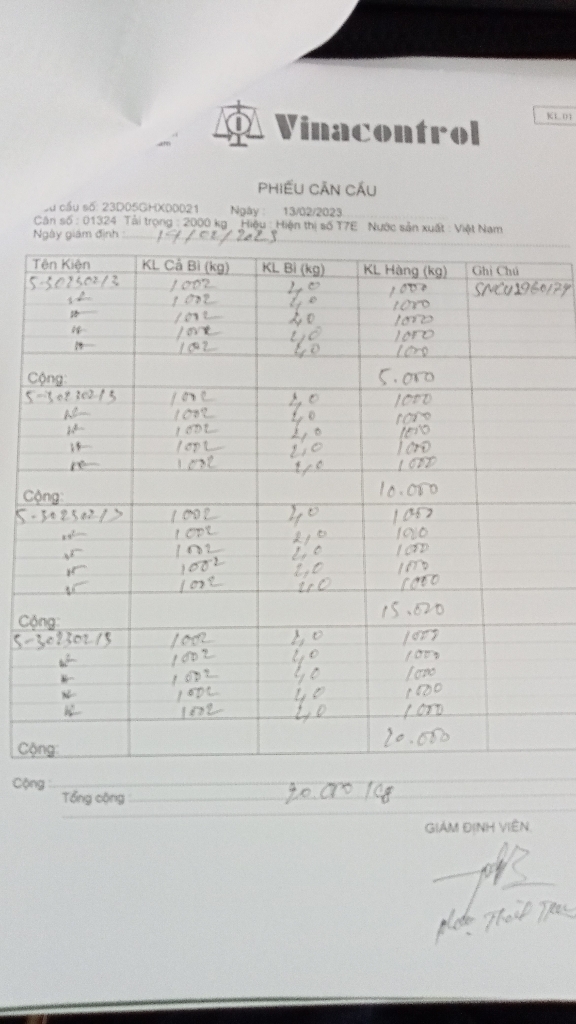 Vinacontrol
KL.01
PHIẾU CÂN CẨU
cầu số: 23D05GHX00021 Ngày : 13/02/2023
Cân số : 01324 Tải trọng : 2000 kg Hiệu : Hiện thị số T7E Nước sản xuất : Việt Nam
Ngày giám định : 14/02/2023
Tên Kiện KL Cả Bì (kg) KL Bì (kg) KL Hàng (kg) Ghi Chú
S-30230213 1002 2,0 1000
1002 2,0 1000
1002 2,0 1000
1002 2,0 1000
1002 2,0 1000
Cộng: 5.000
S-30230213 1002 2,0 1000
1002 2,0 1000
1002 2,0 1000
1002 2,0 1000
1002 2,0 1000
Cộng: 10.000
S-30230213 1002 2,0 1000
1002 2,0 1000
1002 2,0 1000
1002 2,0 1000
1002 2,0 1000
Cộng: 15.000
S-30230213 1002 2,0 1000
1002 2,0 1000
1002 2,0 1000
1002 2,0 1000
1002 2,0 1000
Cộng: 20.000
Cộng :
Tổng cộng : 20.000 Kg
GIÁM ĐỊNH VIÊN